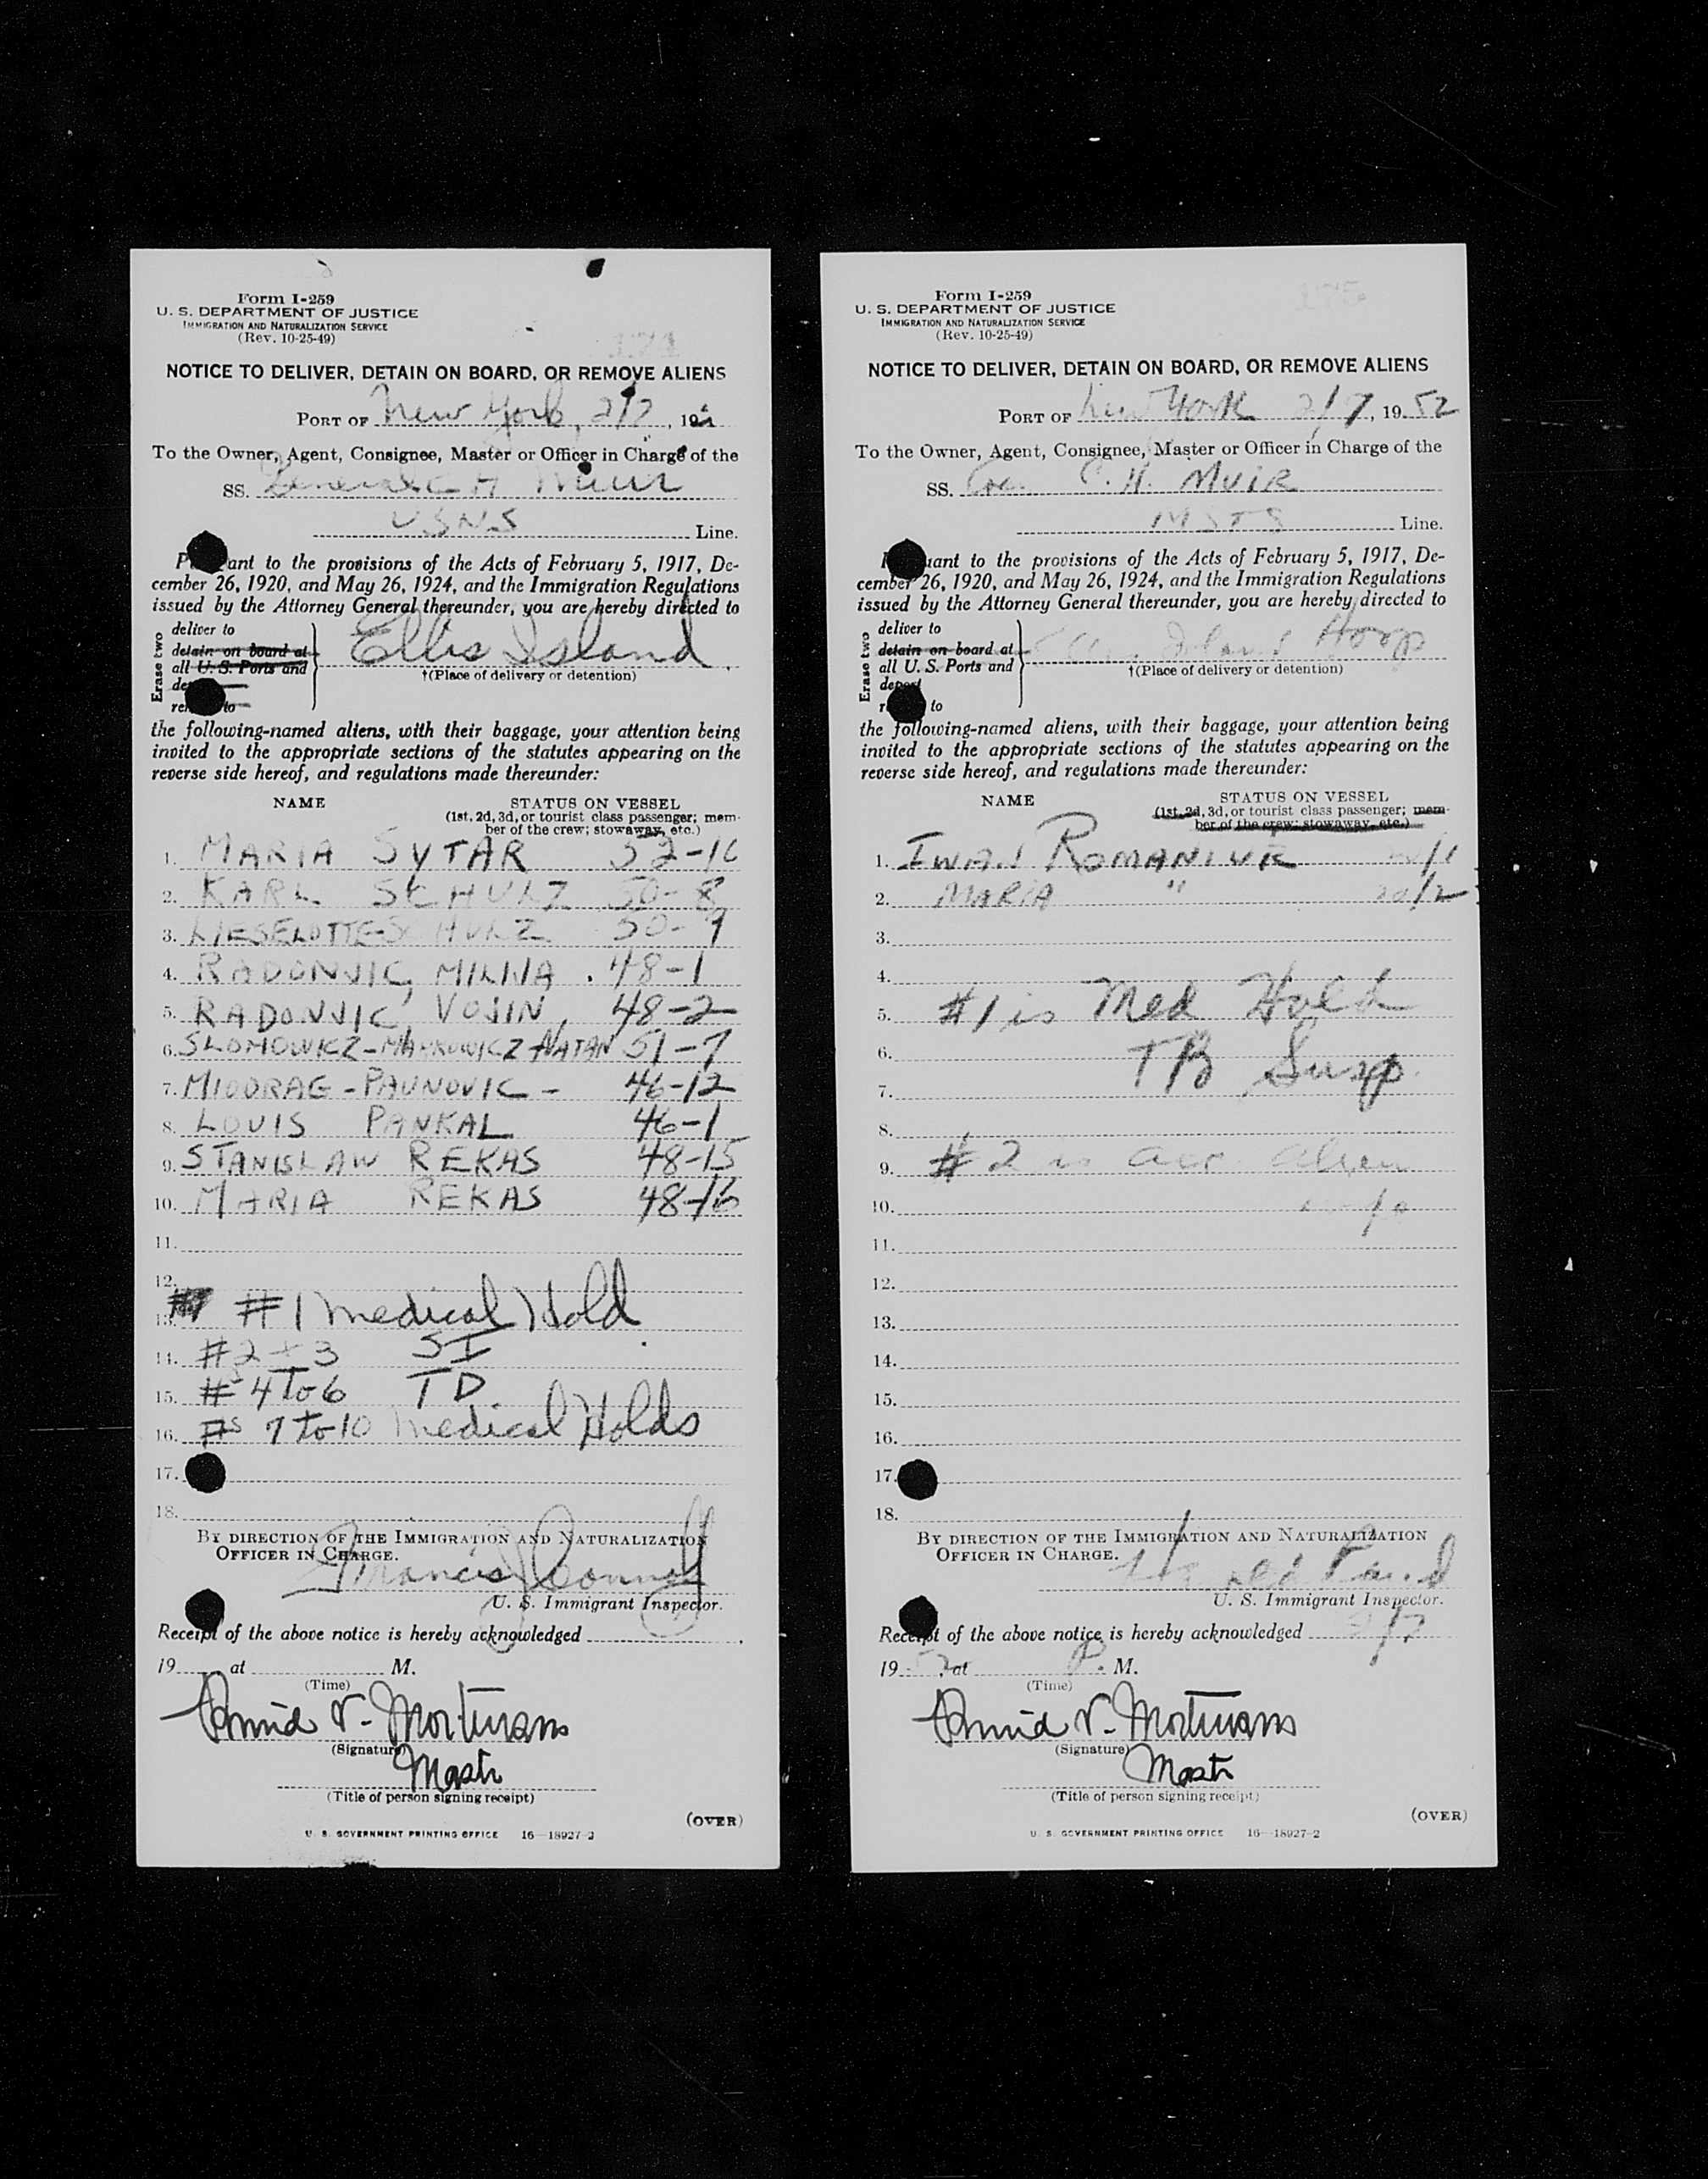 Form I-259
U. S. DEPARTMENT OF JUSTICE
IMMIGRATION AND NATURALIZATION SERVICE
(Rev. 10-25-49)
NOTICE TO DELIVER, DETAIN ON BOARD, OR REMOVE ALIENS
PORT OF New York, 2/7, 19
To the Owner, Agent, Consignee, Master or Officer in Charge of the
SS. General C H Muir
USNS Line.
ant to the provisions of the Acts of February 5, 1917, De-
cember 26, 1920, and May 26, 1924, and the Immigration Regulations
issued by the Attorney General thereunder, you are hereby directed to
Erase two
deliver to
detain on board at
all U. S. Ports and
to
Ellis Island
†(Place of delivery or detention)
the following-named aliens, with their baggage, your attention being
invited to the appropriate sections of the statutes appearing on the
reverse side hereof, and regulations made thereunder:
NAME STATUS ON VESSEL
(1st, 2d, 3d, or tourist class passenger; mem-
ber of the crew; stowaway, etc.)
1. MARIA SYTAR 52-16
2. KARL SCHULZ 50-8
3. LIESELOTTE SCHULZ 50-9
4. RADONJIC, MILIJA 48-1
5. RADONJIC, VOJIN, 48-2
6. SLOMOWICZ-MARKOWICZ NATAN 51-7
7. MIODRAG-PAUNOVIC- 46-12
8. LOUIS PANKAL 46-1
9. STANISLAW REKAS 48-15
10. MARIA REKAS 48-16
11.
12.
13. #1 Medical Hold
14. #2 + 3 SI
15. #s 4 To 6 TD
16. #s 7 to 10 Medical Holds
17.
18.
BY DIRECTION OF THE IMMIGRATION AND NATURALIZATION
OFFICER IN CHARGE.
Francis
U. S. Immigrant Inspector.
Receipt of the above notice is hereby acknowledged
19 at M.
(Time)
V. Mortmans
(Signature)
Mastr
(Title of person signing receipt)
(OVER)
U. S. GOVERNMENT PRINTING OFFICE 16—18927-2
Form I-259
U. S. DEPARTMENT OF JUSTICE
IMMIGRATION AND NATURALIZATION SERVICE
(Rev. 10-25-49)
NOTICE TO DELIVER, DETAIN ON BOARD, OR REMOVE ALIENS
PORT OF New York 2/7, 19 52
To the Owner, Agent, Consignee, Master or Officer in Charge of the
SS. C. H. MUIR
MSTS Line.
uant to the provisions of the Acts of February 5, 1917, De-
cember 26, 1920, and May 26, 1924, and the Immigration Regulations
issued by the Attorney General thereunder, you are hereby directed to
Erase two
deliver to
detain on board at
all U. S. Ports and
deport
to
Ellis Island Hosp
†(Place of delivery or detention)
the following-named aliens, with their baggage, your attention being
invited to the appropriate sections of the statutes appearing on the
reverse side hereof, and regulations made thereunder:
NAME STATUS ON VESSEL
(1st, 2d, 3d, or tourist class passenger; mem-
ber of the crew; stowaway, etc.)
1. IWAN ROMANIUK /1
2. MARIA " 20/2
3.
4.
5. #1 is Med Hold
6.
7. TB Susp.
8.
9. #2 is acc. alien
10.
11.
12.
13.
14.
15.
16.
17.
18.
BY DIRECTION OF THE IMMIGRATION AND NATURALIZATION
OFFICER IN CHARGE.
U. S. Immigrant Inspector.
Receipt of the above notice is hereby acknowledged 2/7
19 52 at P. M.
(Time)
V. Mortmans
(Signature)
Mastr
(Title of person signing receipt)
(OVER)
U. S. GOVERNMENT PRINTING OFFICE 16—18927-2